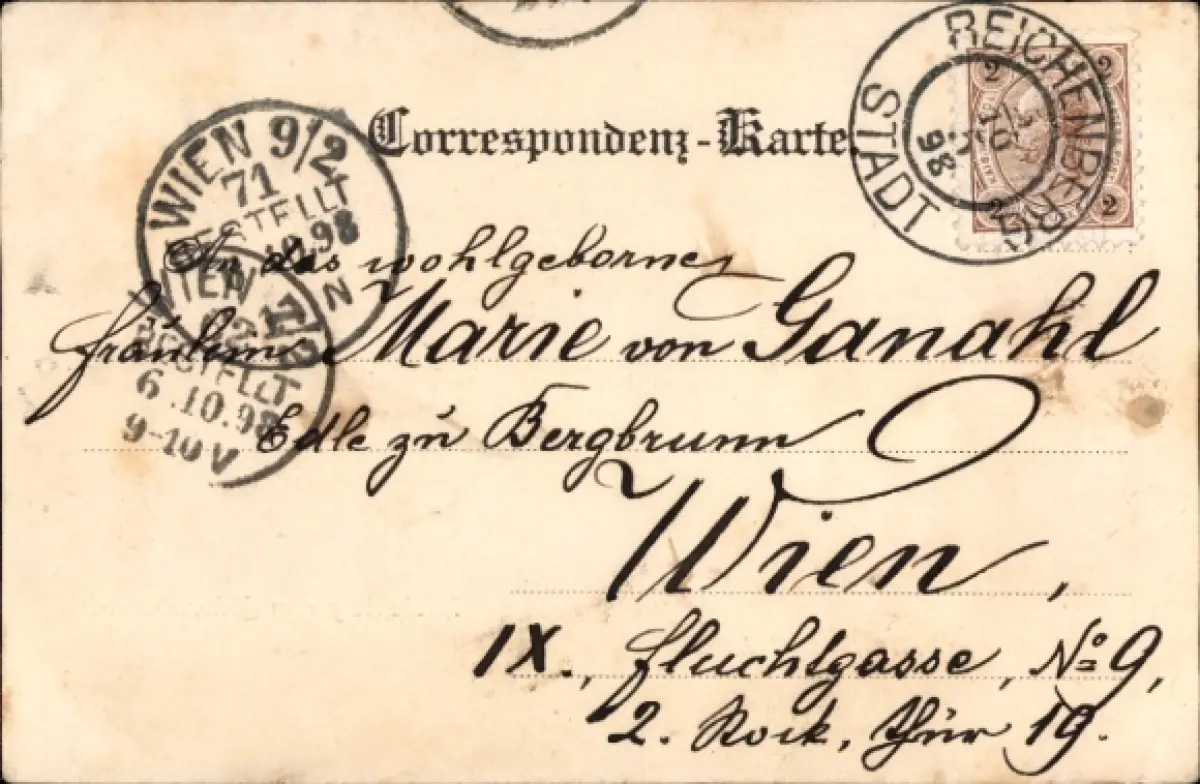 REICHENBERG STADT
98
2 2
2 2
Correspondenz-Karte.
WIEN 9/2
71
BESTELLT
10.98
N
WIEN
BESTELLT
6.10.98
9-10V
An das wohlgeborne
Fräulein Marie von Ganahl
Edle zu Bergbrunn
Wien,
IX., Fluchtgasse, No 9,
2. Stock, Thür 19.